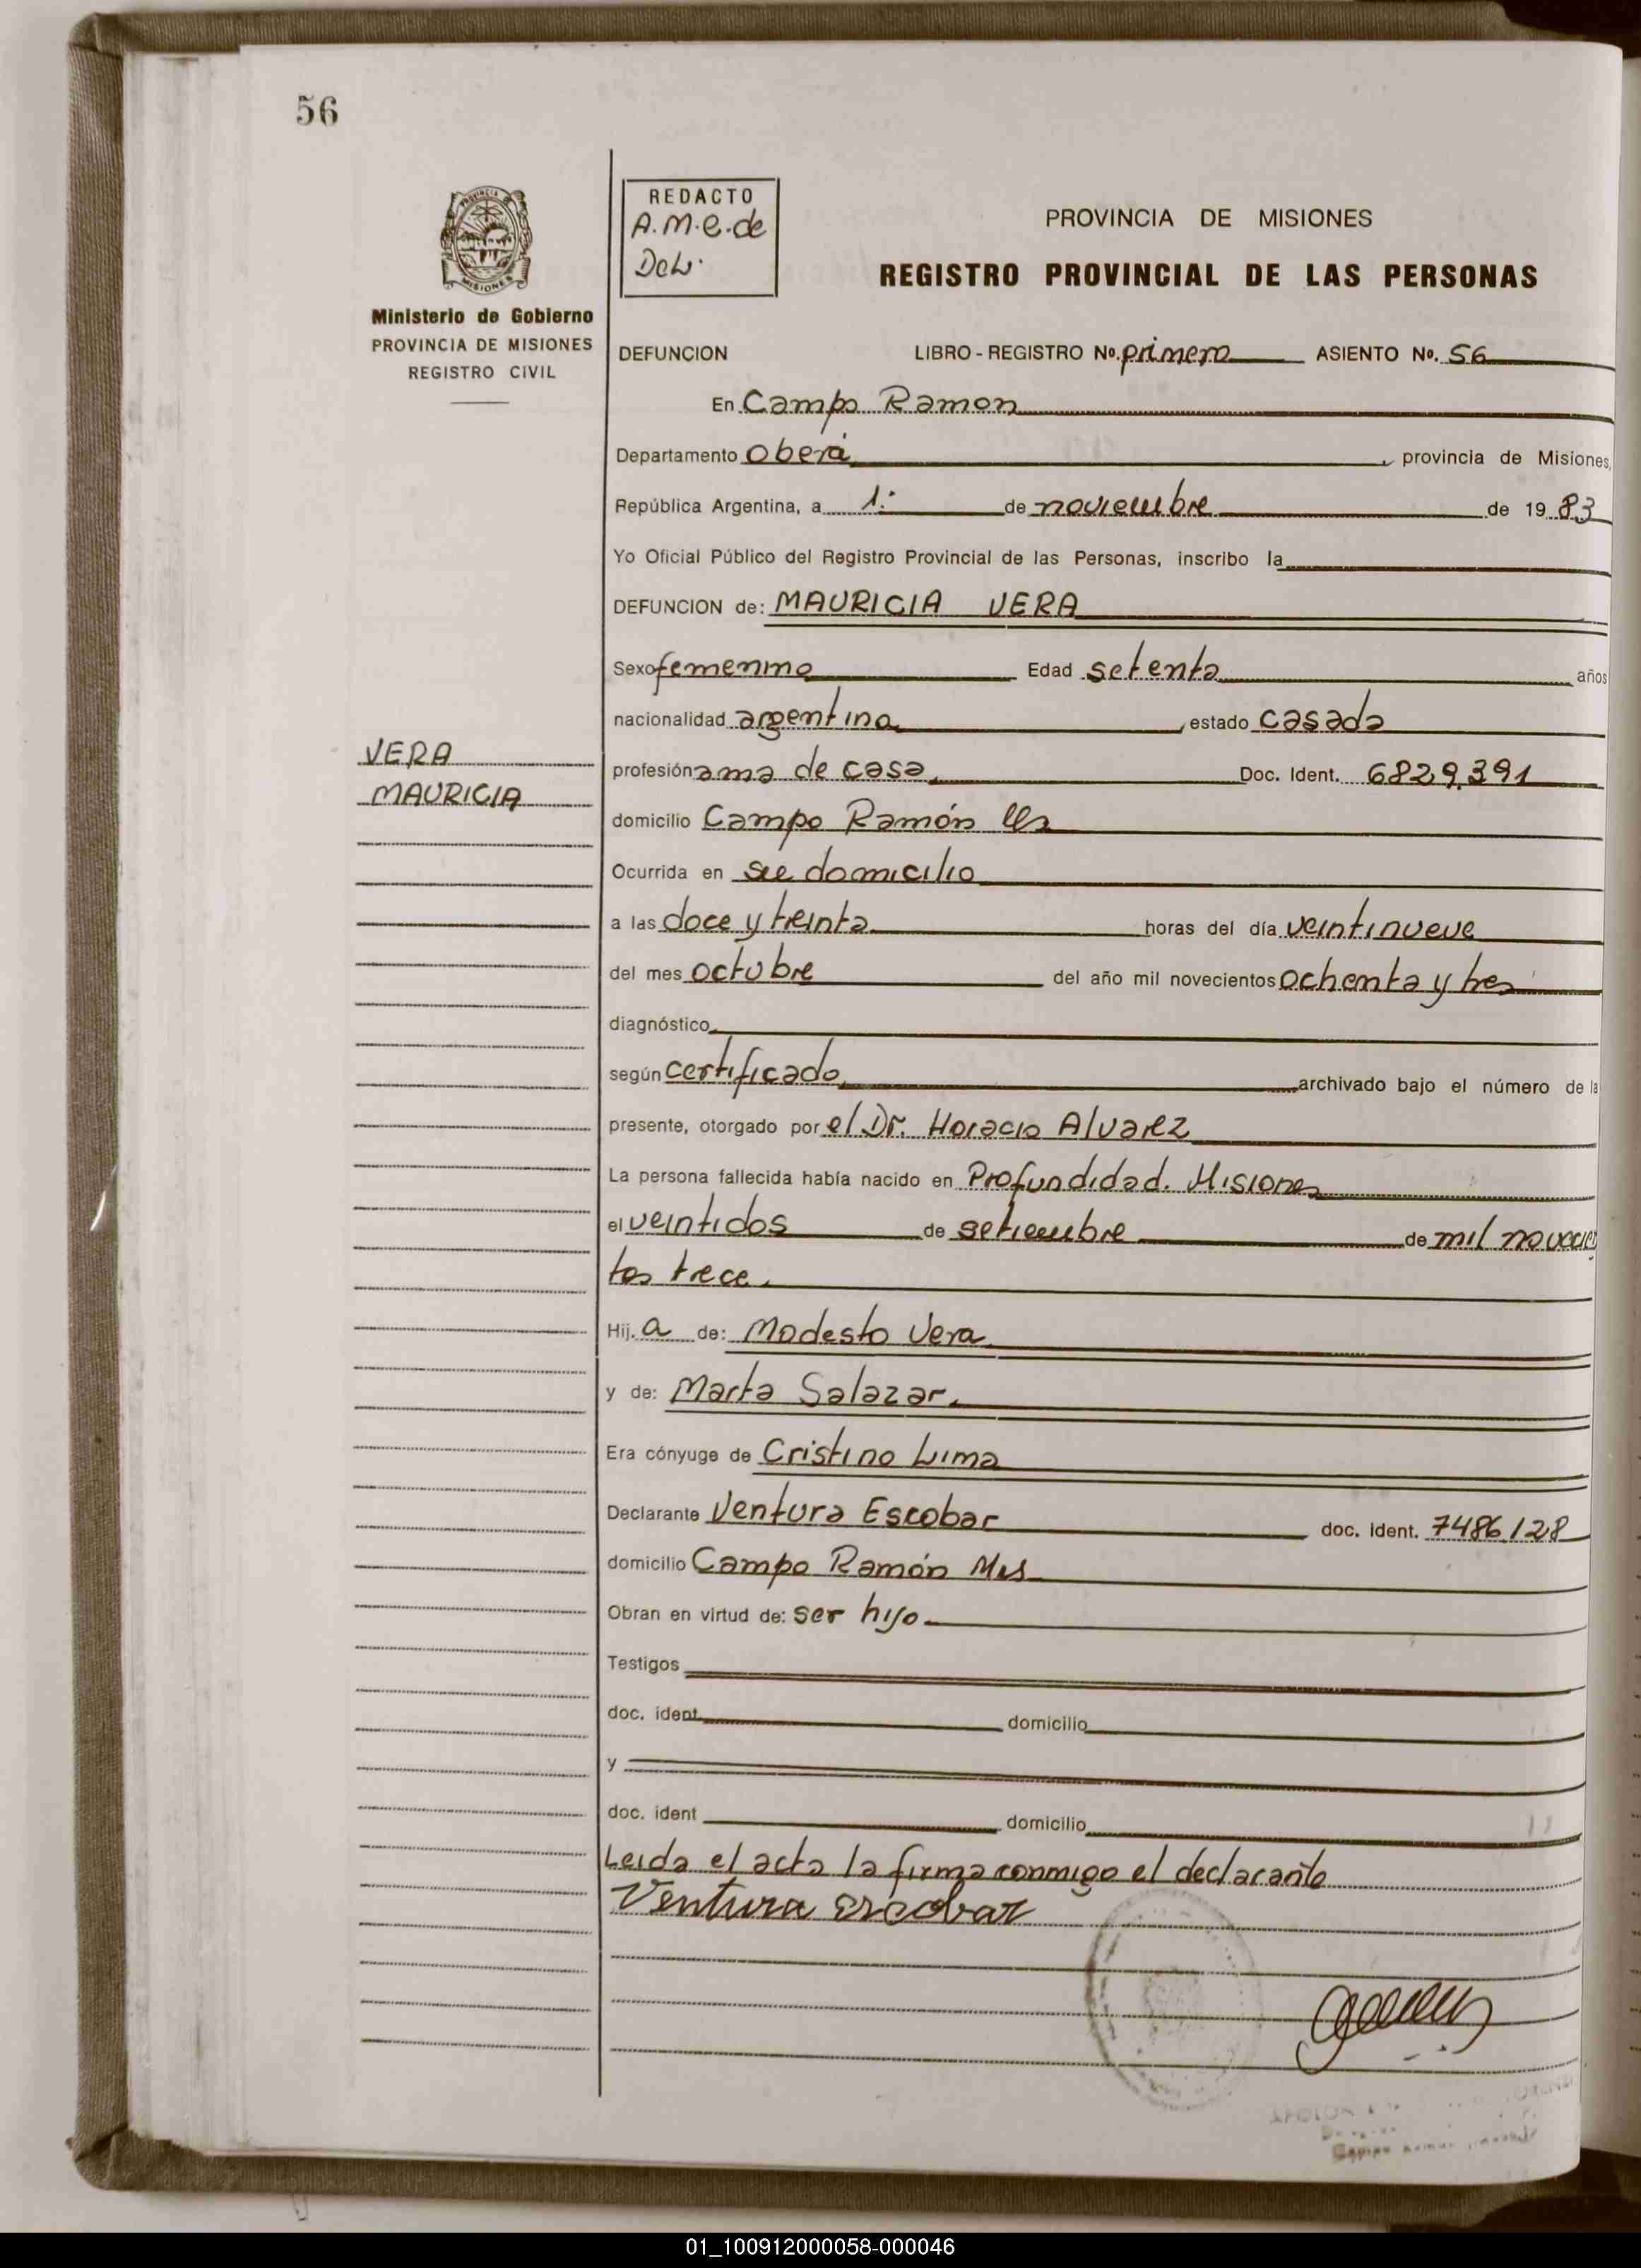 56
PROVINCIA
MISIONES
Ministerio de Gobierno
PROVINCIA DE MISIONES
REGISTRO CIVIL
REDACTO
A.M.e.de
DeL.
PROVINCIA DE MISIONES
REGISTRO PROVINCIAL DE LAS PERSONAS
DEFUNCION LIBRO - REGISTRO Nº. primero ASIENTO Nº. 56
En Campo Ramon
Departamento oberá, provincia de Misiones,
República Argentina, a 1º de noviembre de 1983
Yo Oficial Público del Registro Provincial de las Personas, inscribo la
DEFUNCION de: MAURICIA VERA
Sexo femenino Edad setenta años
nacionalidad argentina, estado casada
VERA
MAURICIA
profesión ama de casa, Doc. Ident. 6829.391
domicilio Campo Ramón
Ocurrida en su domicilio
a las doce y treinta horas del día veintinueve
del mes octubre del año mil novecientos ochenta y tres
diagnóstico
según certificado archivado bajo el número de la
presente, otorgado por el Dr. Horacio Alvarez
La persona fallecida había nacido en Profundidad. Misiones
el veintidos de setiembre de mil novecien
tos trece.
Hij. a de: Modesto Vera
y de: Marta Salazar.
Era cónyuge de Cristino Lima
Declarante Ventura Escobar doc. ident. 7486.128
domicilio Campo Ramón Mes
Obran en virtud de: ser hijo
Testigos
doc. ident. domicilio
y
doc. ident domicilio
Leida el acta la firma conmigo el declarante
Ventura escobar
01_100912000058-000046